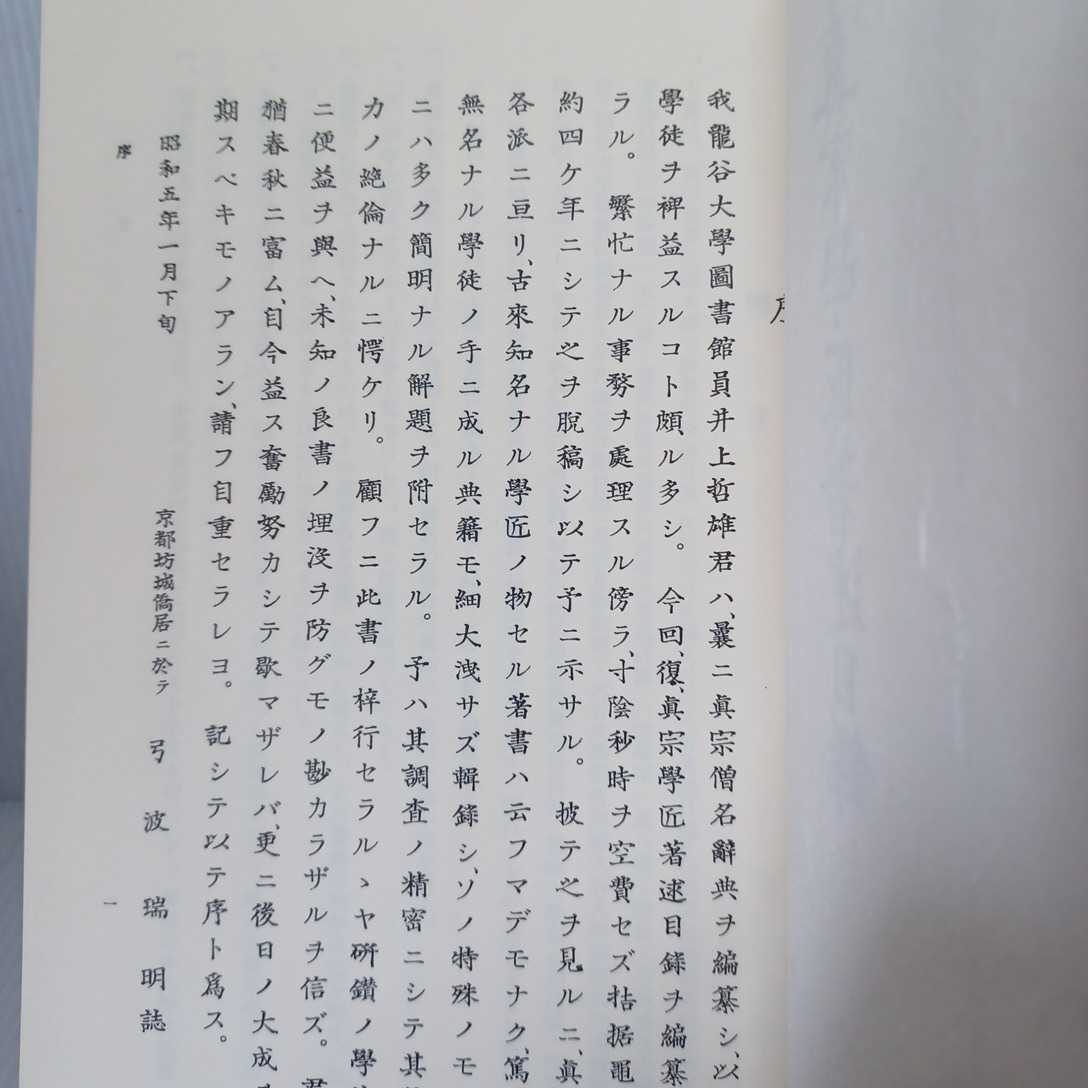 序
我龍谷大學圖書館員井上哲雄君ハ、曩ニ眞宗僧名辭典ヲ編纂シ、以
學徒ヲ裨益スルコト頗ル多シ。今回、復、眞宗學匠著述目錄ヲ編纂
ラル。繁忙ナル事務ヲ處理スル傍ラ、寸陰秒時ヲ空費セズ拮据黽
約四ケ年ニシテ之ヲ脫稿シ以テ予ニ示サル。披テ之ヲ見ルニ、眞
各派ニ亘リ、古來知名ナル學匠ノ物セル著書ハ云フマデモナク、篤
無名ナル學徒ノ手ニ成ル典籍モ、細大洩サズ輯錄シ、ソノ特殊ノモ
ニハ多ク簡明ナル解題ヲ附セラル。予ハ其調査ノ精密ニシテ其
力ノ絶倫ナルニ愕ケリ。顧フニ此書ノ梓行セラルヽヤ硏鑽ノ學
ニ便益ヲ與ヘ、未知ノ良書ノ埋沒ヲ防グモノ尠カラザルヲ信ズ。君
猶春秋ニ富ム、自今益ス奮勵努力シテ歇マザレバ、更ニ後日ノ大成
期スベキモノアラン、請フ自重セラレヨ。記シテ以テ序ト爲ス。
昭和五年一月下旬
京都坊城僑居ニ於テ
弓波瑞明誌
序
一